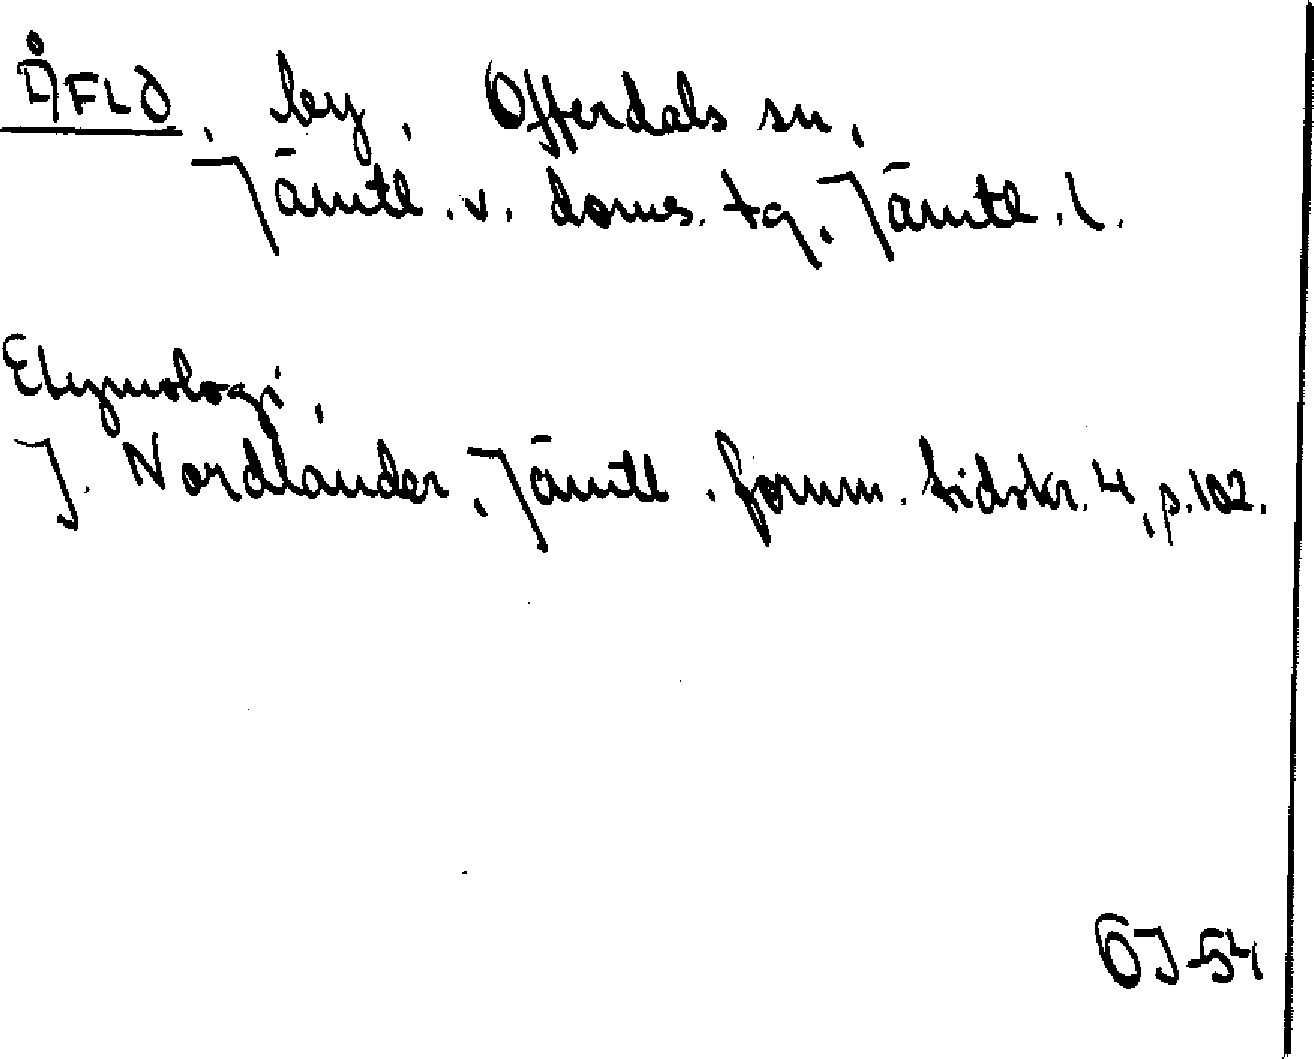 ÅFLO, by, Offerdals sn,
Jämtl. v. doms. tg, Jämtl. l.
Etymologi,
J. Nordlander, Jämtl. fornm. tidskr. 4, p. 102.
ÖJ-54